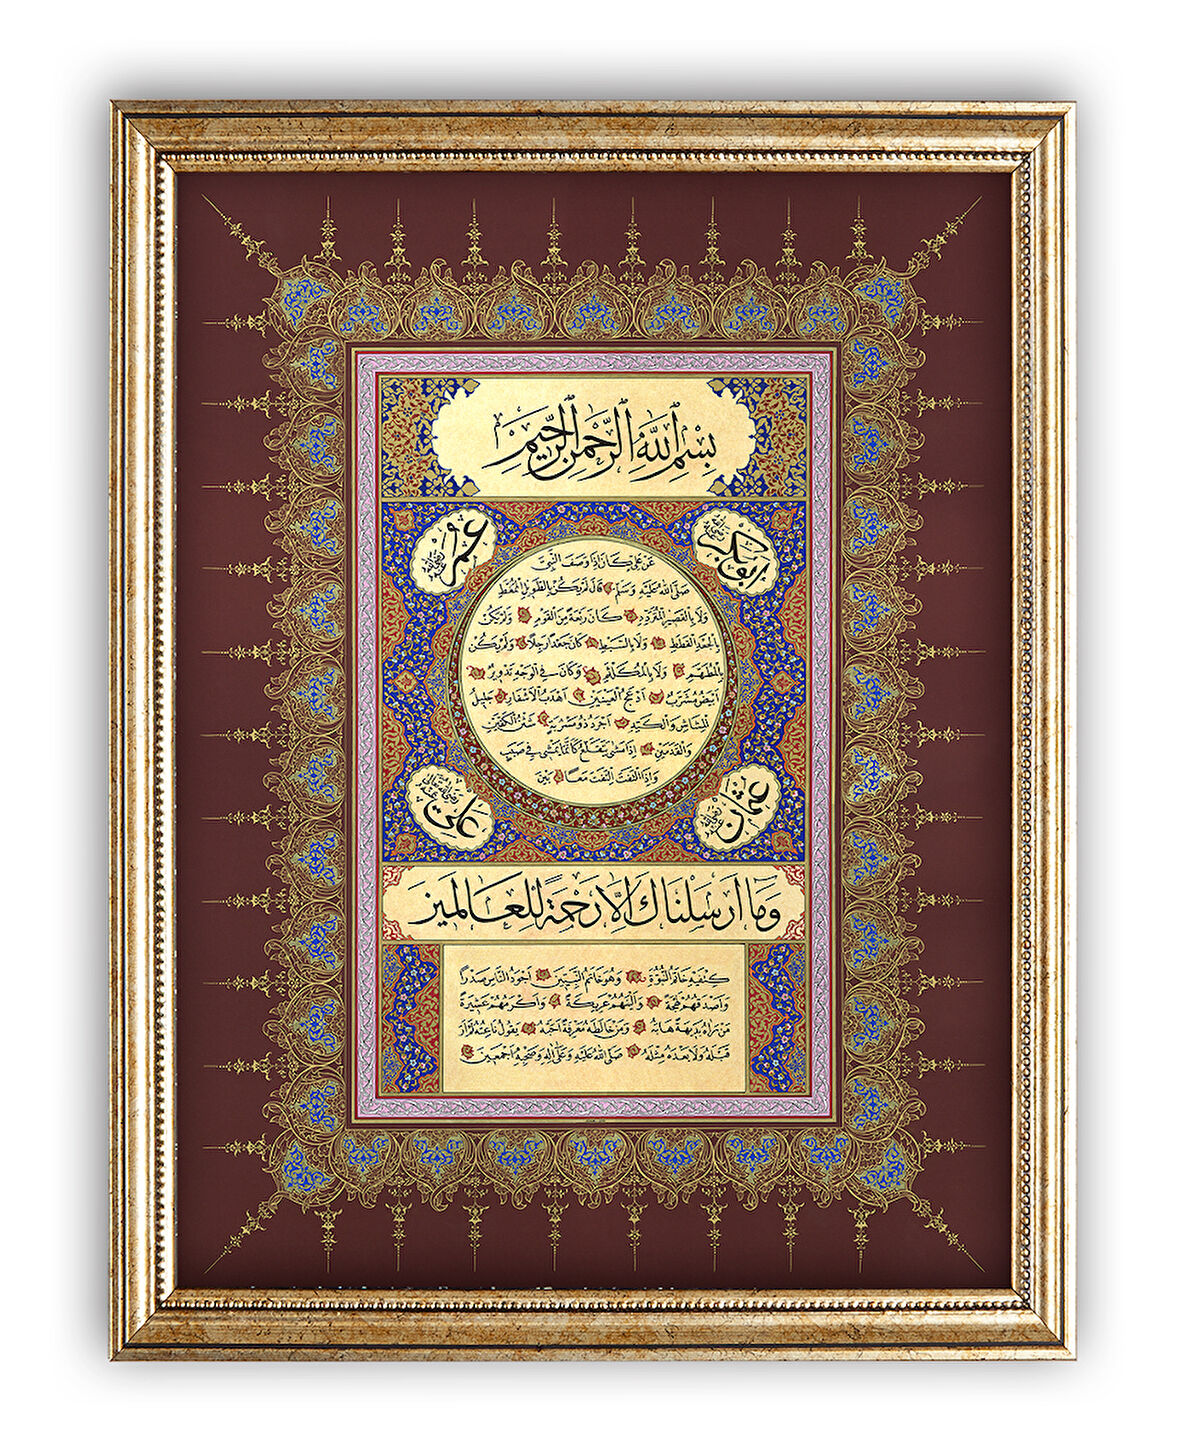 بِسْمِ اللّٰهِ الرَّحْمٰنِ الرَّحِيمِ
ابوبكر رضى الله عنه
عمر رضى الله عنه
عَنْ عَلِيٍّ كَانَ إِذَا وَصَفَ النَّبِيَّ
صَلَّى اللهُ عَلَيْهِ وَسَلَّمَ قَالَ لَمْ يَكُنْ بِالطَّوِيلِ الْمُمَّغِطِ
وَلَا بِالْقَصِيرِ الْمُتَرَدِّدِ كَانَ رَبْعَةً مِنَ الْقَوْمِ وَلَمْ يَكُنْ
بِالْجَعْدِ الْقَطَطِ وَلَا بِالسَّبِطِ كَانَ جَعْدًا رَجِلًا وَلَمْ يَكُنْ
بِالْمُطَهَّمِ وَلَا بِالْمُكَلْثَمِ وَكَانَ فِي الْوَجْهِ تَدْوِيرٌ
أَبْيَضُ مُشْرَبٌ أَدْعَجُ الْعَيْنَيْنِ أَهْدَبُ الْأَشْفَارِ جَلِيلُ
الْمُشَاشِ وَالْكَتَدِ أَجْرَدُ ذُو مَسْرُبَةٍ شَثْنُ الْكَفَّيْنِ
وَالْقَدَمَيْنِ إِذَا مَشَى يَتَقَلَّعُ كَأَنَّمَا يَمْشِي فِي صَبَبٍ
وَإِذَا الْتَفَتَ الْتَفَتَ مَعًا بَيْنَ
عثمان رضى الله عنه
على رضى الله تعالى عنه
وَمَا أَرْسَلْنَاكَ إِلَّا رَحْمَةً لِلْعَالَمِينَ
كَتِفَيْهِ خَاتَمُ النُّبُوَّةِ وَهُوَ خَاتَمُ النَّبِيِّينَ أَجْوَدُ النَّاسِ صَدْرًا
وَأَصْدَقُهُمْ لَهْجَةً وَأَلْيَنُهُمْ عَرِيكَةً وَأَكْرَمُهُمْ عَشِيرَةً
مَنْ رَآهُ بَدِيهَةً هَابَهُ وَمَنْ خَالَطَهُ مَعْرِفَةً أَحَبَّهُ يَقُولُ نَاعِتُهُ لَمْ أَرَ
قَبْلَهُ وَلَا بَعْدَهُ مِثْلَهُ صَلَّى اللهُ عَلَيْهِ وَعَلَى آلِهِ وَصَحْبِهِ أَجْمَعِينَ